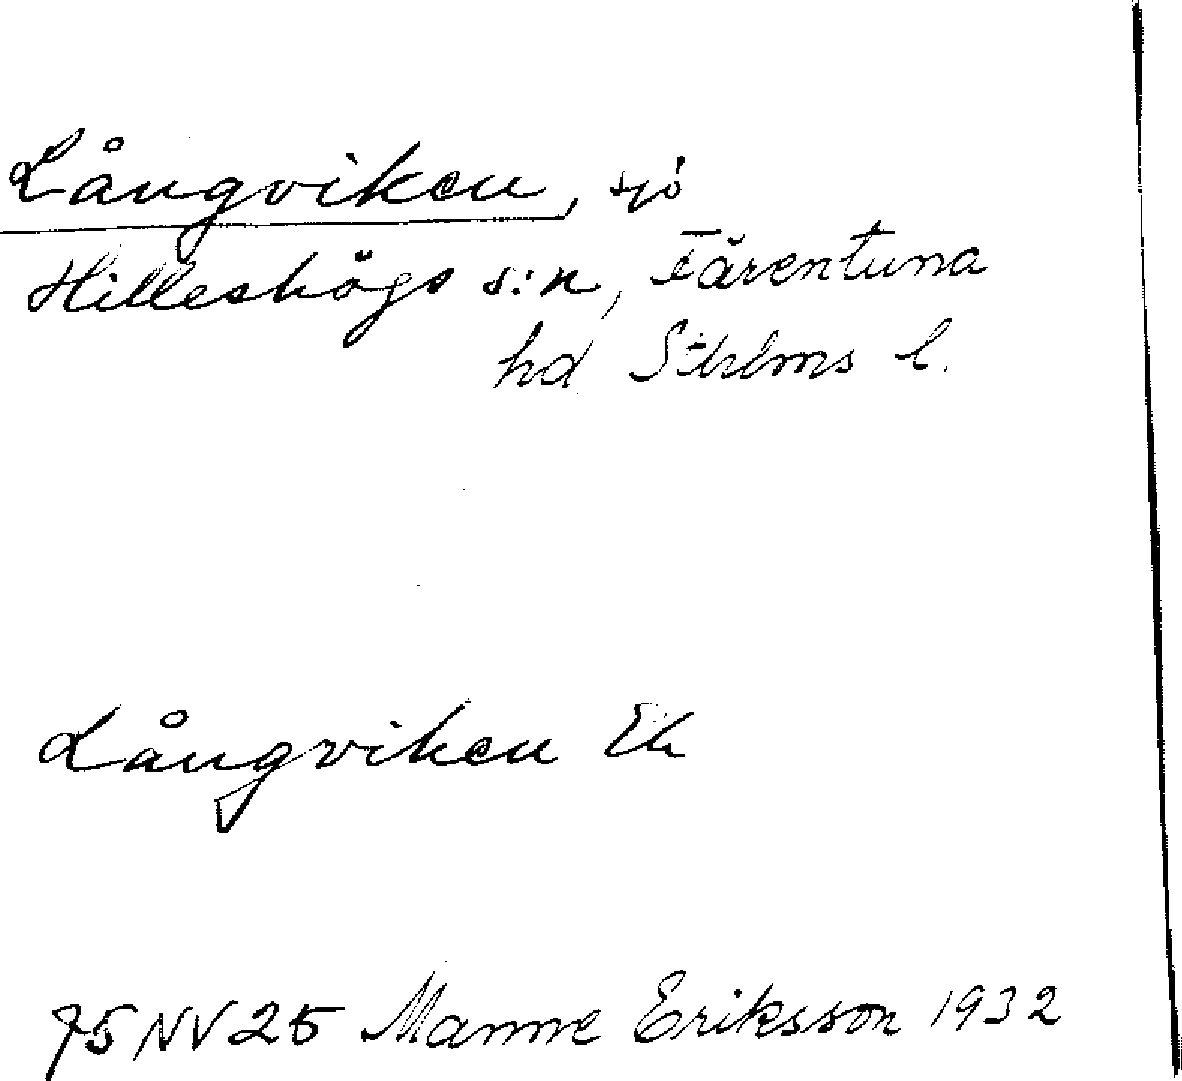 Långviken, sjö
Hilleshögs s:n, Färentuna
hd Sthlms l.
Långviken Ek
75 NV 25 Manne Eriksson 1932